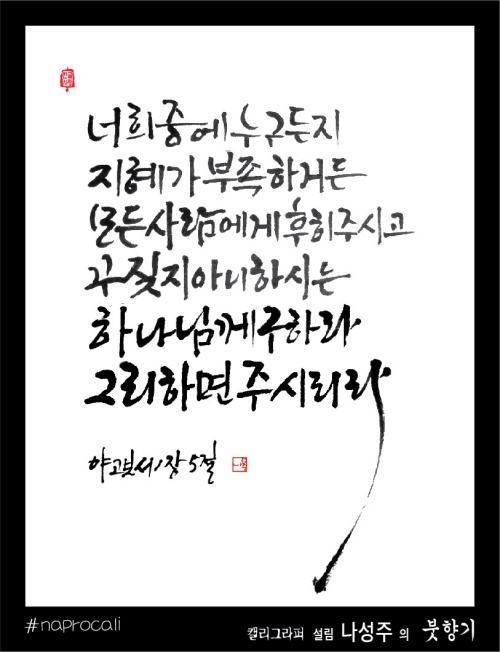 너희 중에 누구든지
지혜가 부족하거든
모든 사람에게 후히 주시고
꾸짖지 아니하시는
하나님께 구하라
그리하면 주시리라
야고보서 1장 5절
#naprocali
캘리그라퍼 설림 나성주 의 붓향기